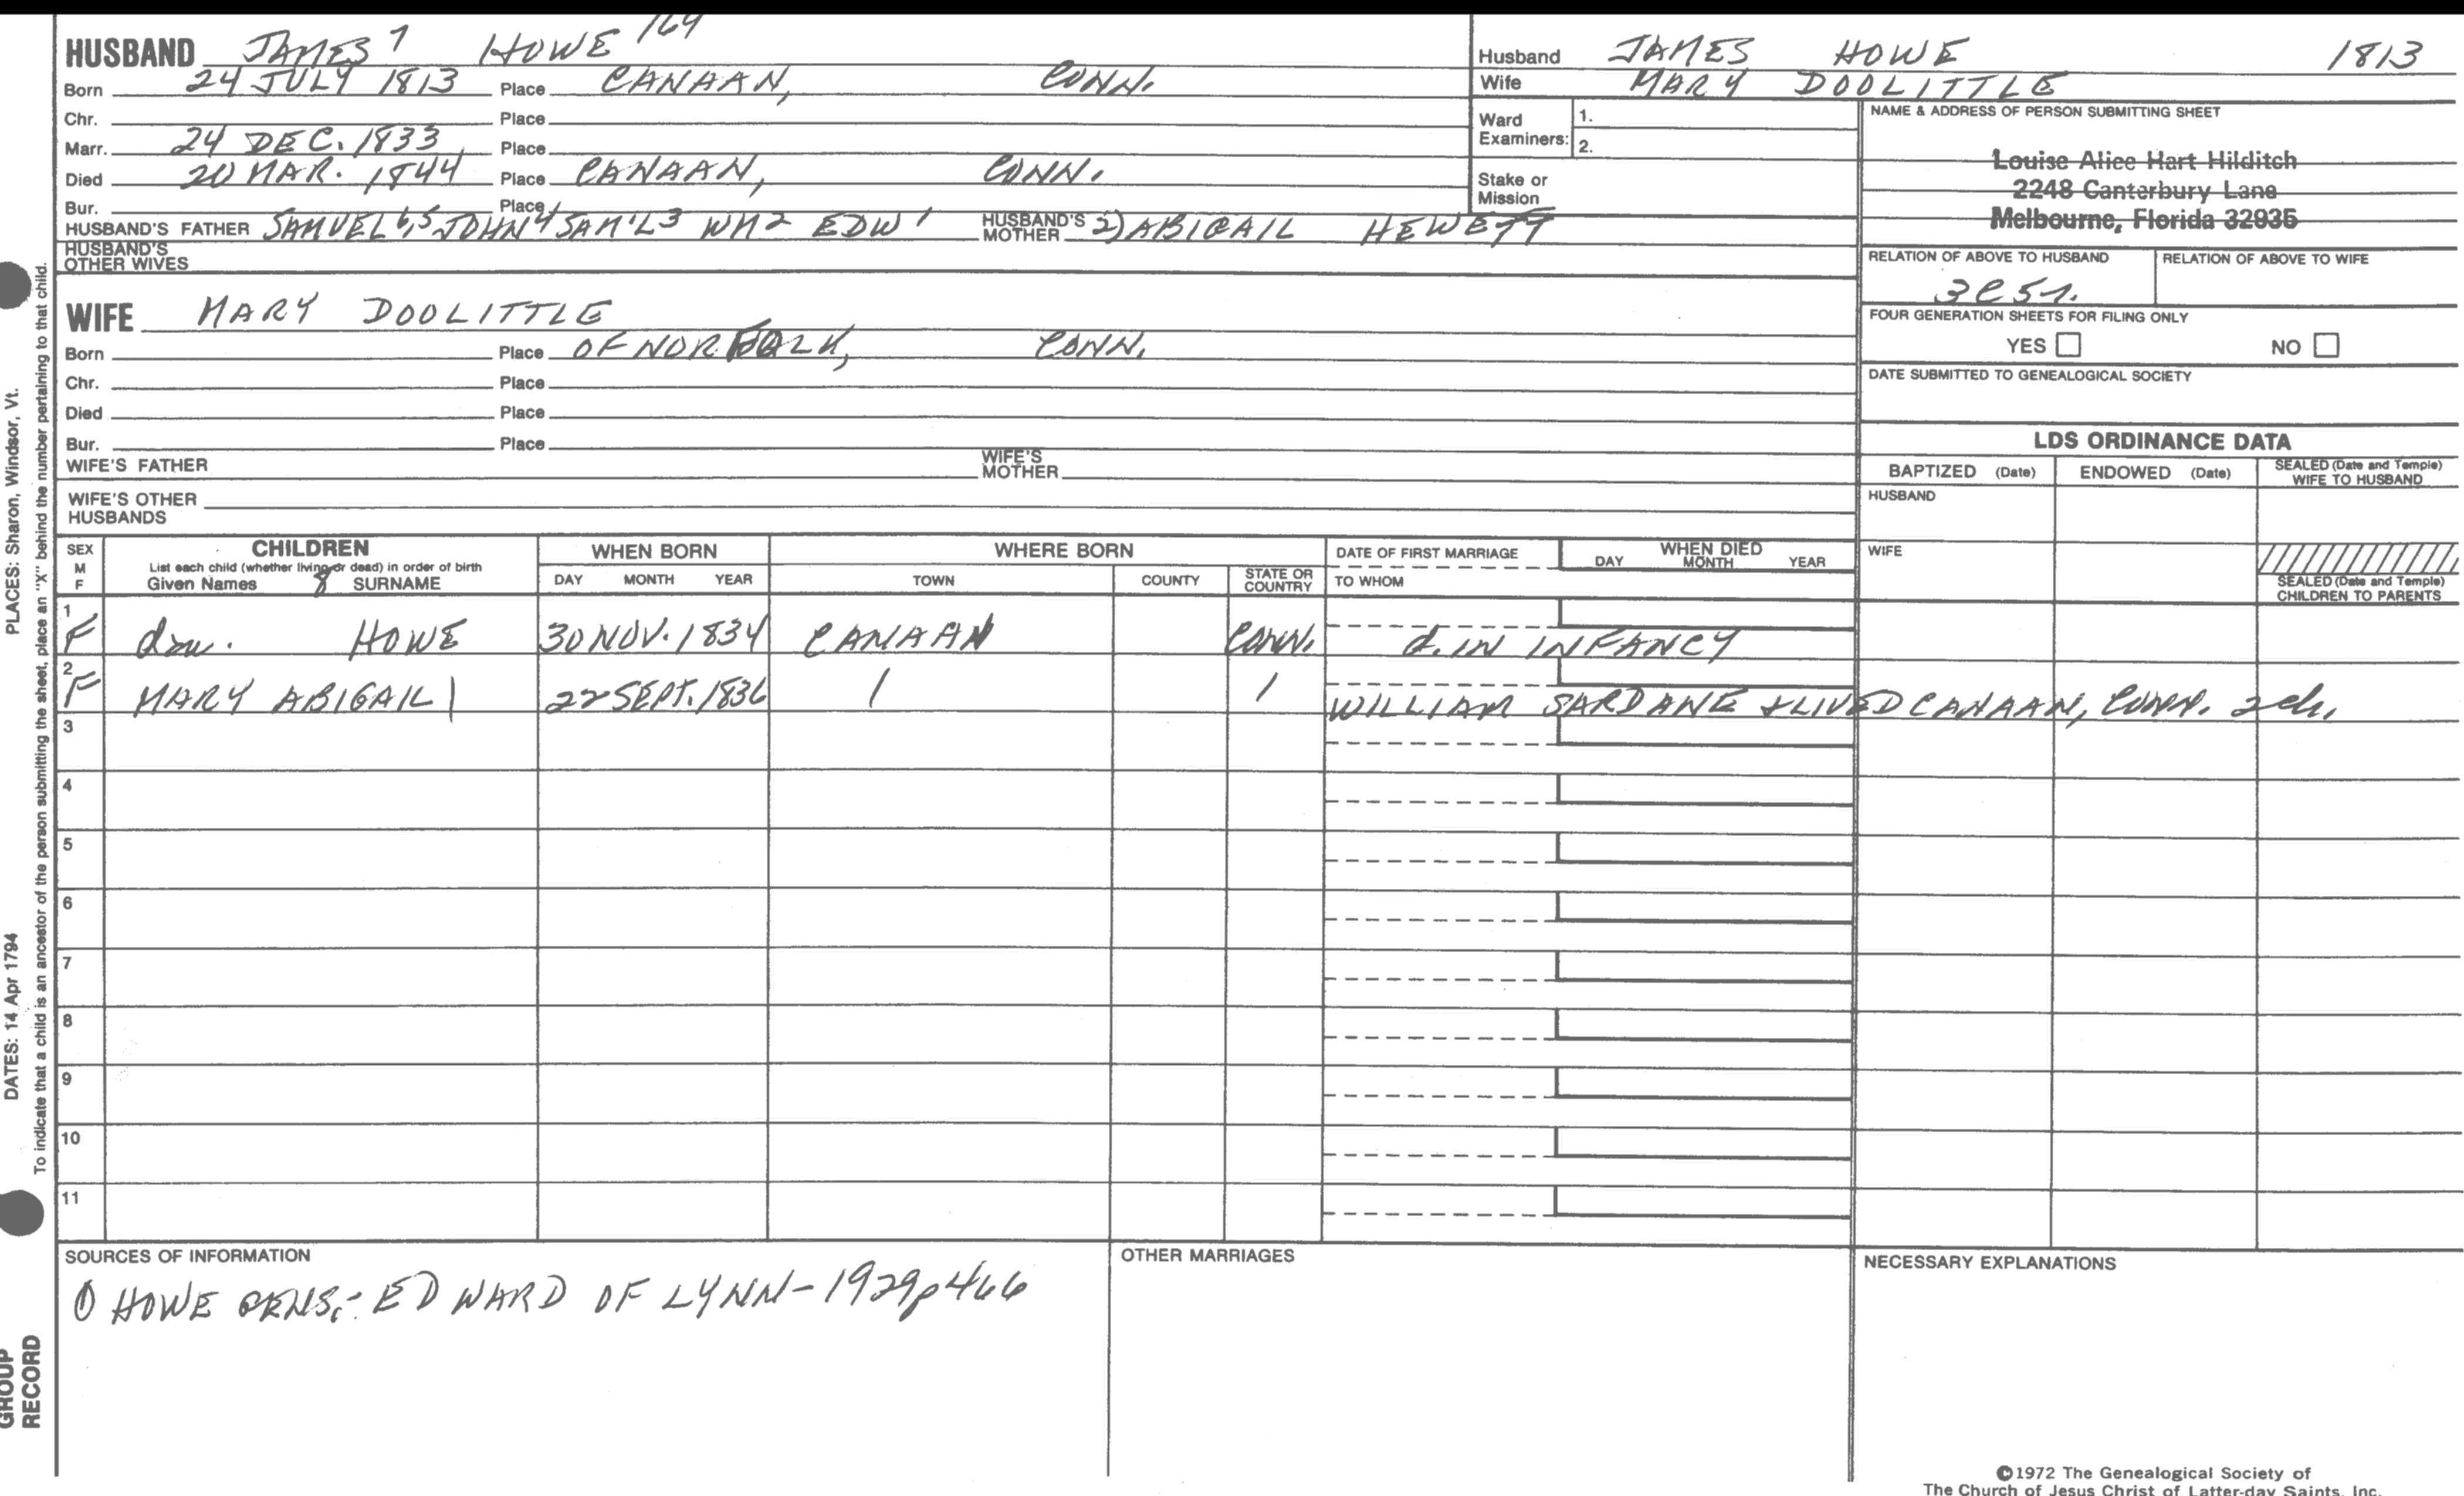 HUSBAND JAMES 7 HOWE 164
Born 24 JULY 1813 Place CANAAN, CONN.
Chr. Place
Marr. 24 DEC. 1833 Place
Died 20 MAR. 1844 Place CANAAN, CONN.
Bur. Place
HUSBAND'S FATHER SAMUEL 6,5 JOHN 4 SAM'L 3 WM 2 EDW 1 HUSBAND'S MOTHER 2) ABIGAIL HEWETT
HUSBAND'S OTHER WIVES
WIFE MARY DOOLITTLE
Born Place OF NORFOLK, CONN.
Chr. Place
Died Place
Bur. Place
WIFE'S FATHER WIFE'S MOTHER
WIFE'S OTHER HUSBANDS
Husband JAMES HOWE 1813
Wife MARY DOOLITTLE
Ward Examiners: 1.
2.
Stake or Mission
NAME & ADDRESS OF PERSON SUBMITTING SHEET
Louise Alice Hart Hilditch
2248 Canterbury Lane
Melbourne, Florida 32935
RELATION OF ABOVE TO HUSBAND RELATION OF ABOVE TO WIFE
FOUR GENERATION SHEETS FOR FILING ONLY
YES NO
DATE SUBMITTED TO GENEALOGICAL SOCIETY
LDS ORDINANCE DATA
BAPTIZED (Date) ENDOWED (Date) SEALED (Date and Temple) WIFE TO HUSBAND
HUSBAND
WIFE
SEALED (Date and Temple) CHILDREN TO PARENTS
SEX M F
CHILDREN
List each child (whether living or dead) in order of birth
Given Names 8 SURNAME
WHEN BORN
DAY MONTH YEAR
WHERE BORN
TOWN COUNTY STATE OR COUNTRY
DATE OF FIRST MARRIAGE
TO WHOM
WHEN DIED
DAY MONTH YEAR
1 F dau. HOWE 30 NOV. 1834 CANAAN CONN. d. IN INFANCY
2 F MARY ABIGAIL | 22 SEPT. 1836 / / WILLIAM SARDANE & LIVED CANAAN, CONN. 2 ch.
3
4
5
6
7
8
9
10
11
SOURCES OF INFORMATION
① HOWE GENS.- EDWARD OF LYNN-1929 p466
OTHER MARRIAGES
NECESSARY EXPLANATIONS
©1972 The Genealogical Society of
The Church of Jesus Christ of Latter-day Saints, Inc.
PLACES: Sharon, Windsor, Vt.
DATES: 14 Apr 1794
To indicate that a child is an ancestor of the person submitting the sheet, place an "X" behind the number pertaining to that child.
GROUP
RECORD